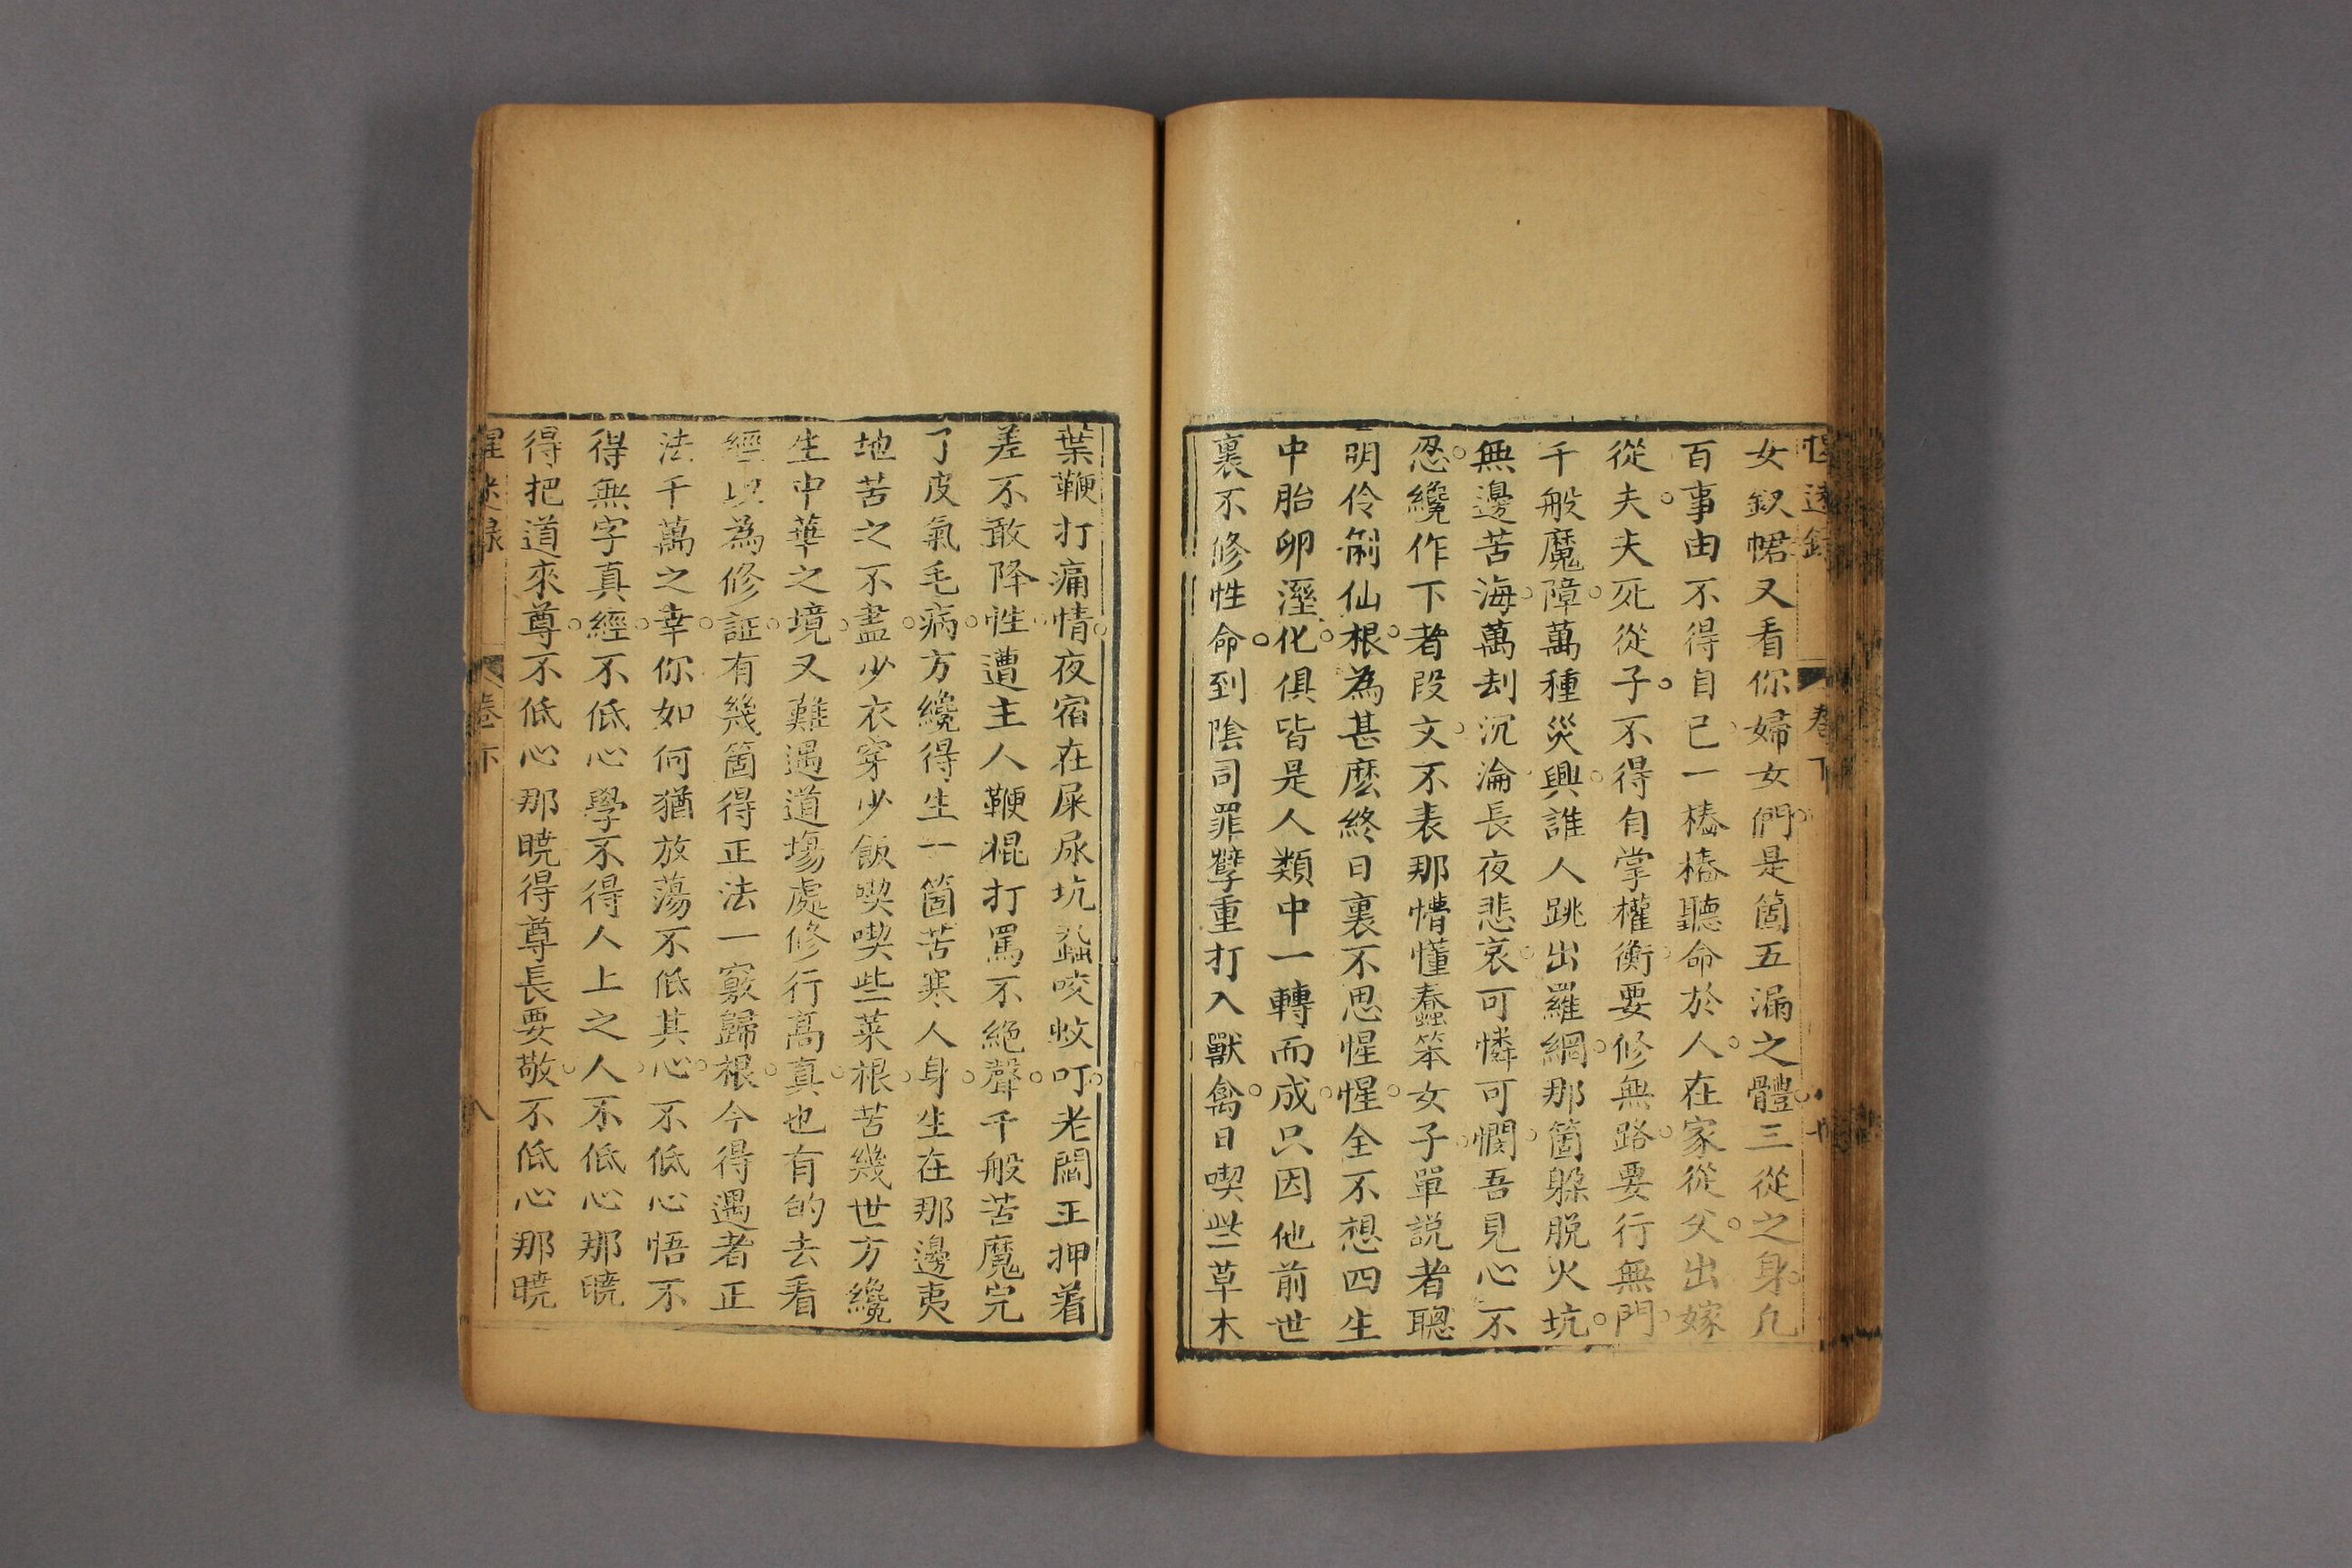 惺迷錄 卷下 七
女釵裙又看你婦女們。是箇五漏之體。三從之身。凡
百事由不得自己。一樁樁聽命於人。在家從父。出嫁
從夫。夫死從子。不得自掌權衡。要修無路。要行無門。
千般魔障。萬種災興。誰人跳出羅網。那箇躲脫火坑。
無邊苦海。萬刦沉淪。長夜悲哀。可憐可憫。吾見心不
忍。纔作下者段文。不表那懵懂蠢笨女子。單説者聰
明伶俐仙根。為甚麼終日裏不思惺惺。全不想四生
中胎卵溼化。俱皆是人類中一轉而成。只因他前世
裏不修性命。到陰司罪孽重打入獸禽。日喫些草木
葉鞭打痛情。夜宿在屎尿坑蟲咬蚊叮。老閻王押着
差不敢降性。遭主人鞭棍打罵不絕聲。千般苦魔完
了皮氣毛病。方纔得生一箇苦寒人身。生在那邊夷
地苦之不盡。少衣穿少飯喫喫些菜根。苦幾世方纔
生中華之境。又難遇道場處修行高真。也有的去看
經以為修証。有幾箇得正法一竅歸根。今得遇者正
法千萬之幸。你如何猶放蕩不低其心。不低心悟不
得無字真經。不低心學不得人上之人。不低心那曉
得把道來尊。不低心那曉得尊長要敬。不低心那曉
惺迷錄 卷下 八